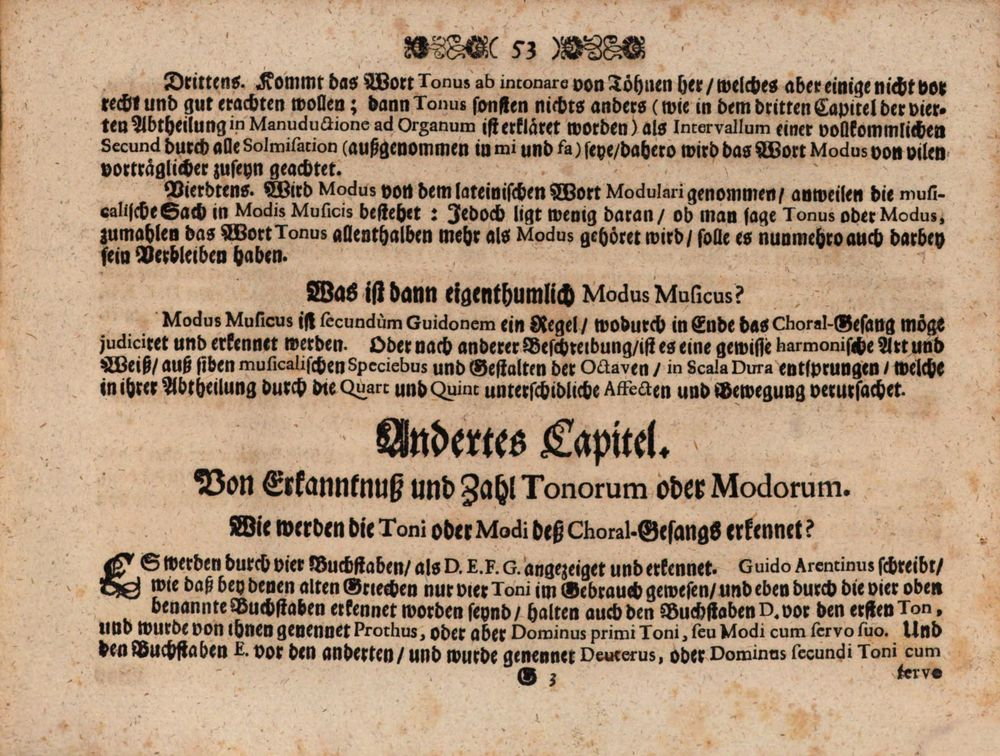 ( 53 )
Drittens. Kommt das Wort Tonus ab intonare von Töhnen her / welches aber einige nicht vor
recht und gut erachten wollen; dann Tonus sonsten nichts anders (wie in dem dritten Capitel der vier-
ten Abtheilung in Manuductione ad Organum ist erkläret worden) als Intervallum einer vollkommlichen
Secund durch alle Solmisation (außgenommen in mi und fa) seye / dahero wird das Wort Modus von vilen
vorträglicher zuseyn geachtet.
Vierdtens. Wird Modus von dem lateinischen Wort Modulari genommen / anweilen die musi-
calische Sach in Modis Musicis bestehet: Jedoch ligt wenig daran / ob man sage Tonus oder Modus,
zumahlen das Wort Tonus allenthalben mehr als Modus gehöret wird / solle es nunmehro auch darbey
sein Verbleiben haben.
Was ist dann eigenthumlich Modus Musicus?
Modus Musicus ist secundùm Guidonem ein Regel / wodurch in Ende das Choral-Gesang möge
judiciret und erkennet werden. Oder nach anderer Beschreibung / ist es eine gewisse harmonische Art und
Weiß / auß siben musicalischen Speciebus und Gestalten der Octaven / in Scala Dura entsprungen / welche
in ihrer Abtheilung durch die Quart und Quint unterschidliche Affecten und Bewegung verursachet.
Andertes Capitel.
Von Erkanntnuß und Zahl Tonorum oder Modorum.
Wie werden die Toni oder Modi deß Choral-Gesangs erkennet?
ES werden durch vier Buchstaben / als D. E. F. G. angezeiget und erkennet. Guido Arentinus schreibt /
wie daß bey denen alten Griechen nur vier Toni im Gebrauch gewesen / und eben durch die vier oben
benannte Buchstaben erkennet worden seynd / halten auch den Buchstaben D. vor den ersten Ton,
und wurde von ihnen genennet Prothus, oder aber Dominus primi Toni, seu Modi cum servo suo. Und
den Buchstaben E. vor den anderten / und wurde genennet Deuterus, oder Dominus secundi Toni cum
G 3 servo